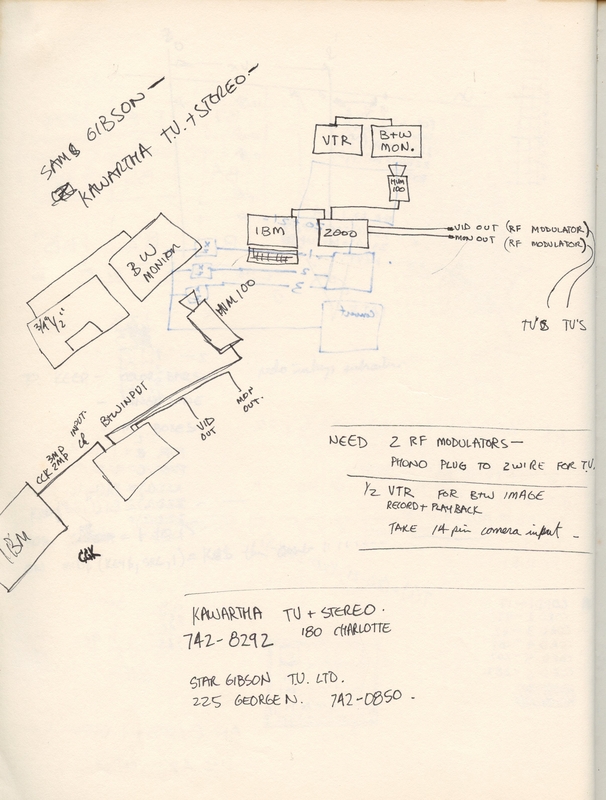 SAM GIBSON —
KAWARTHA T.V. + STEREO. —
VTR
B+W
MON.
HVM
100
IBM
2000
VID OUT (RF MODULATOR)
MON OUT (RF MODULATOR)
TV'S TV'S
B W
MONITOR
3/4" 1/2"
HVM 100
B+W INPUT
INPUT
3MP
CCK 2MP
VID
OUT
MON
OUT.
IBM
CCK
NEED 2 RF MODULATORS —
PHONO PLUG TO 2 WIRE FOR T.V.
1/2 VTR FOR B+W IMAGE
RECORD + PLAYBACK
TAKE 14 pin camera input -
KAWARTHA TV + STEREO.
742-8292 180 CHARLOTTE
STAR GIBSON T.V. LTD.
225 GEORGE N. 742-0850.